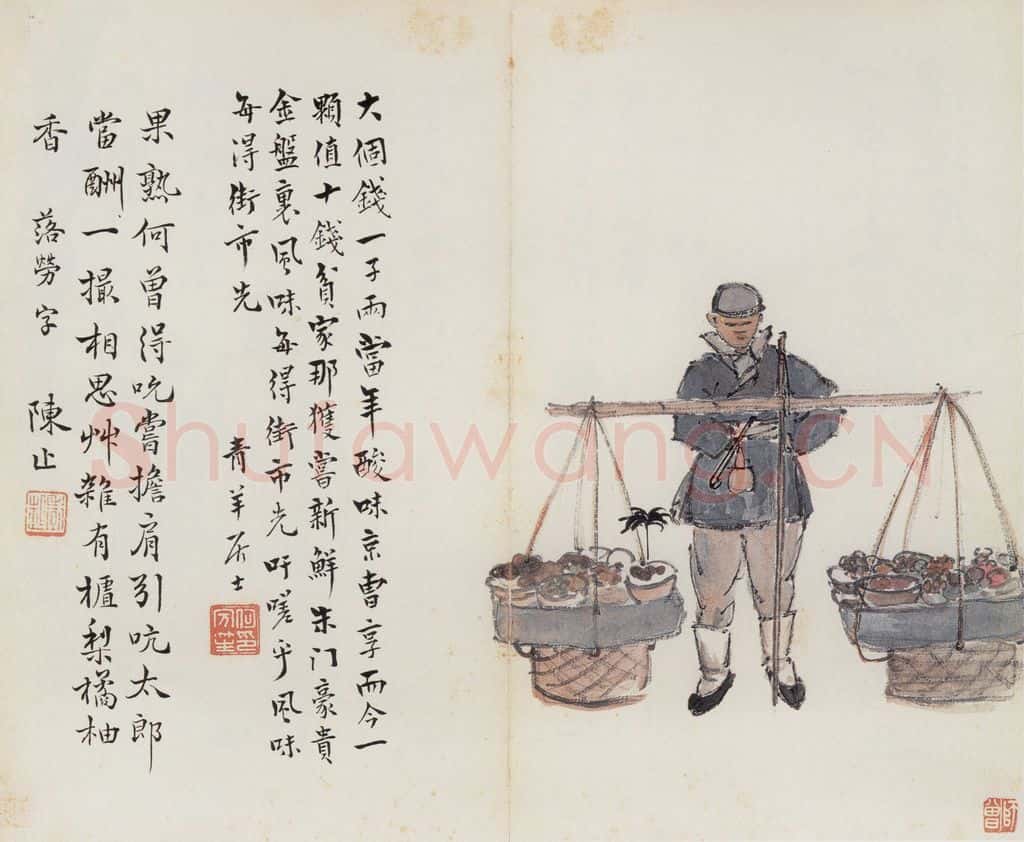 大個錢一子兩當年酸味京曹享而今一
顆值十錢貧家那獲嘗新鮮朱门豪貴
金盤裏風味每得街市先吁嗟乎風味
每得街市先
青羊居士
果熟何曾得吃嘗擔肩引吭太郎
當酬一撮相思艸雜有樝梨橘柚
香 落勞字 陳止
師曾
Shufawang.CN